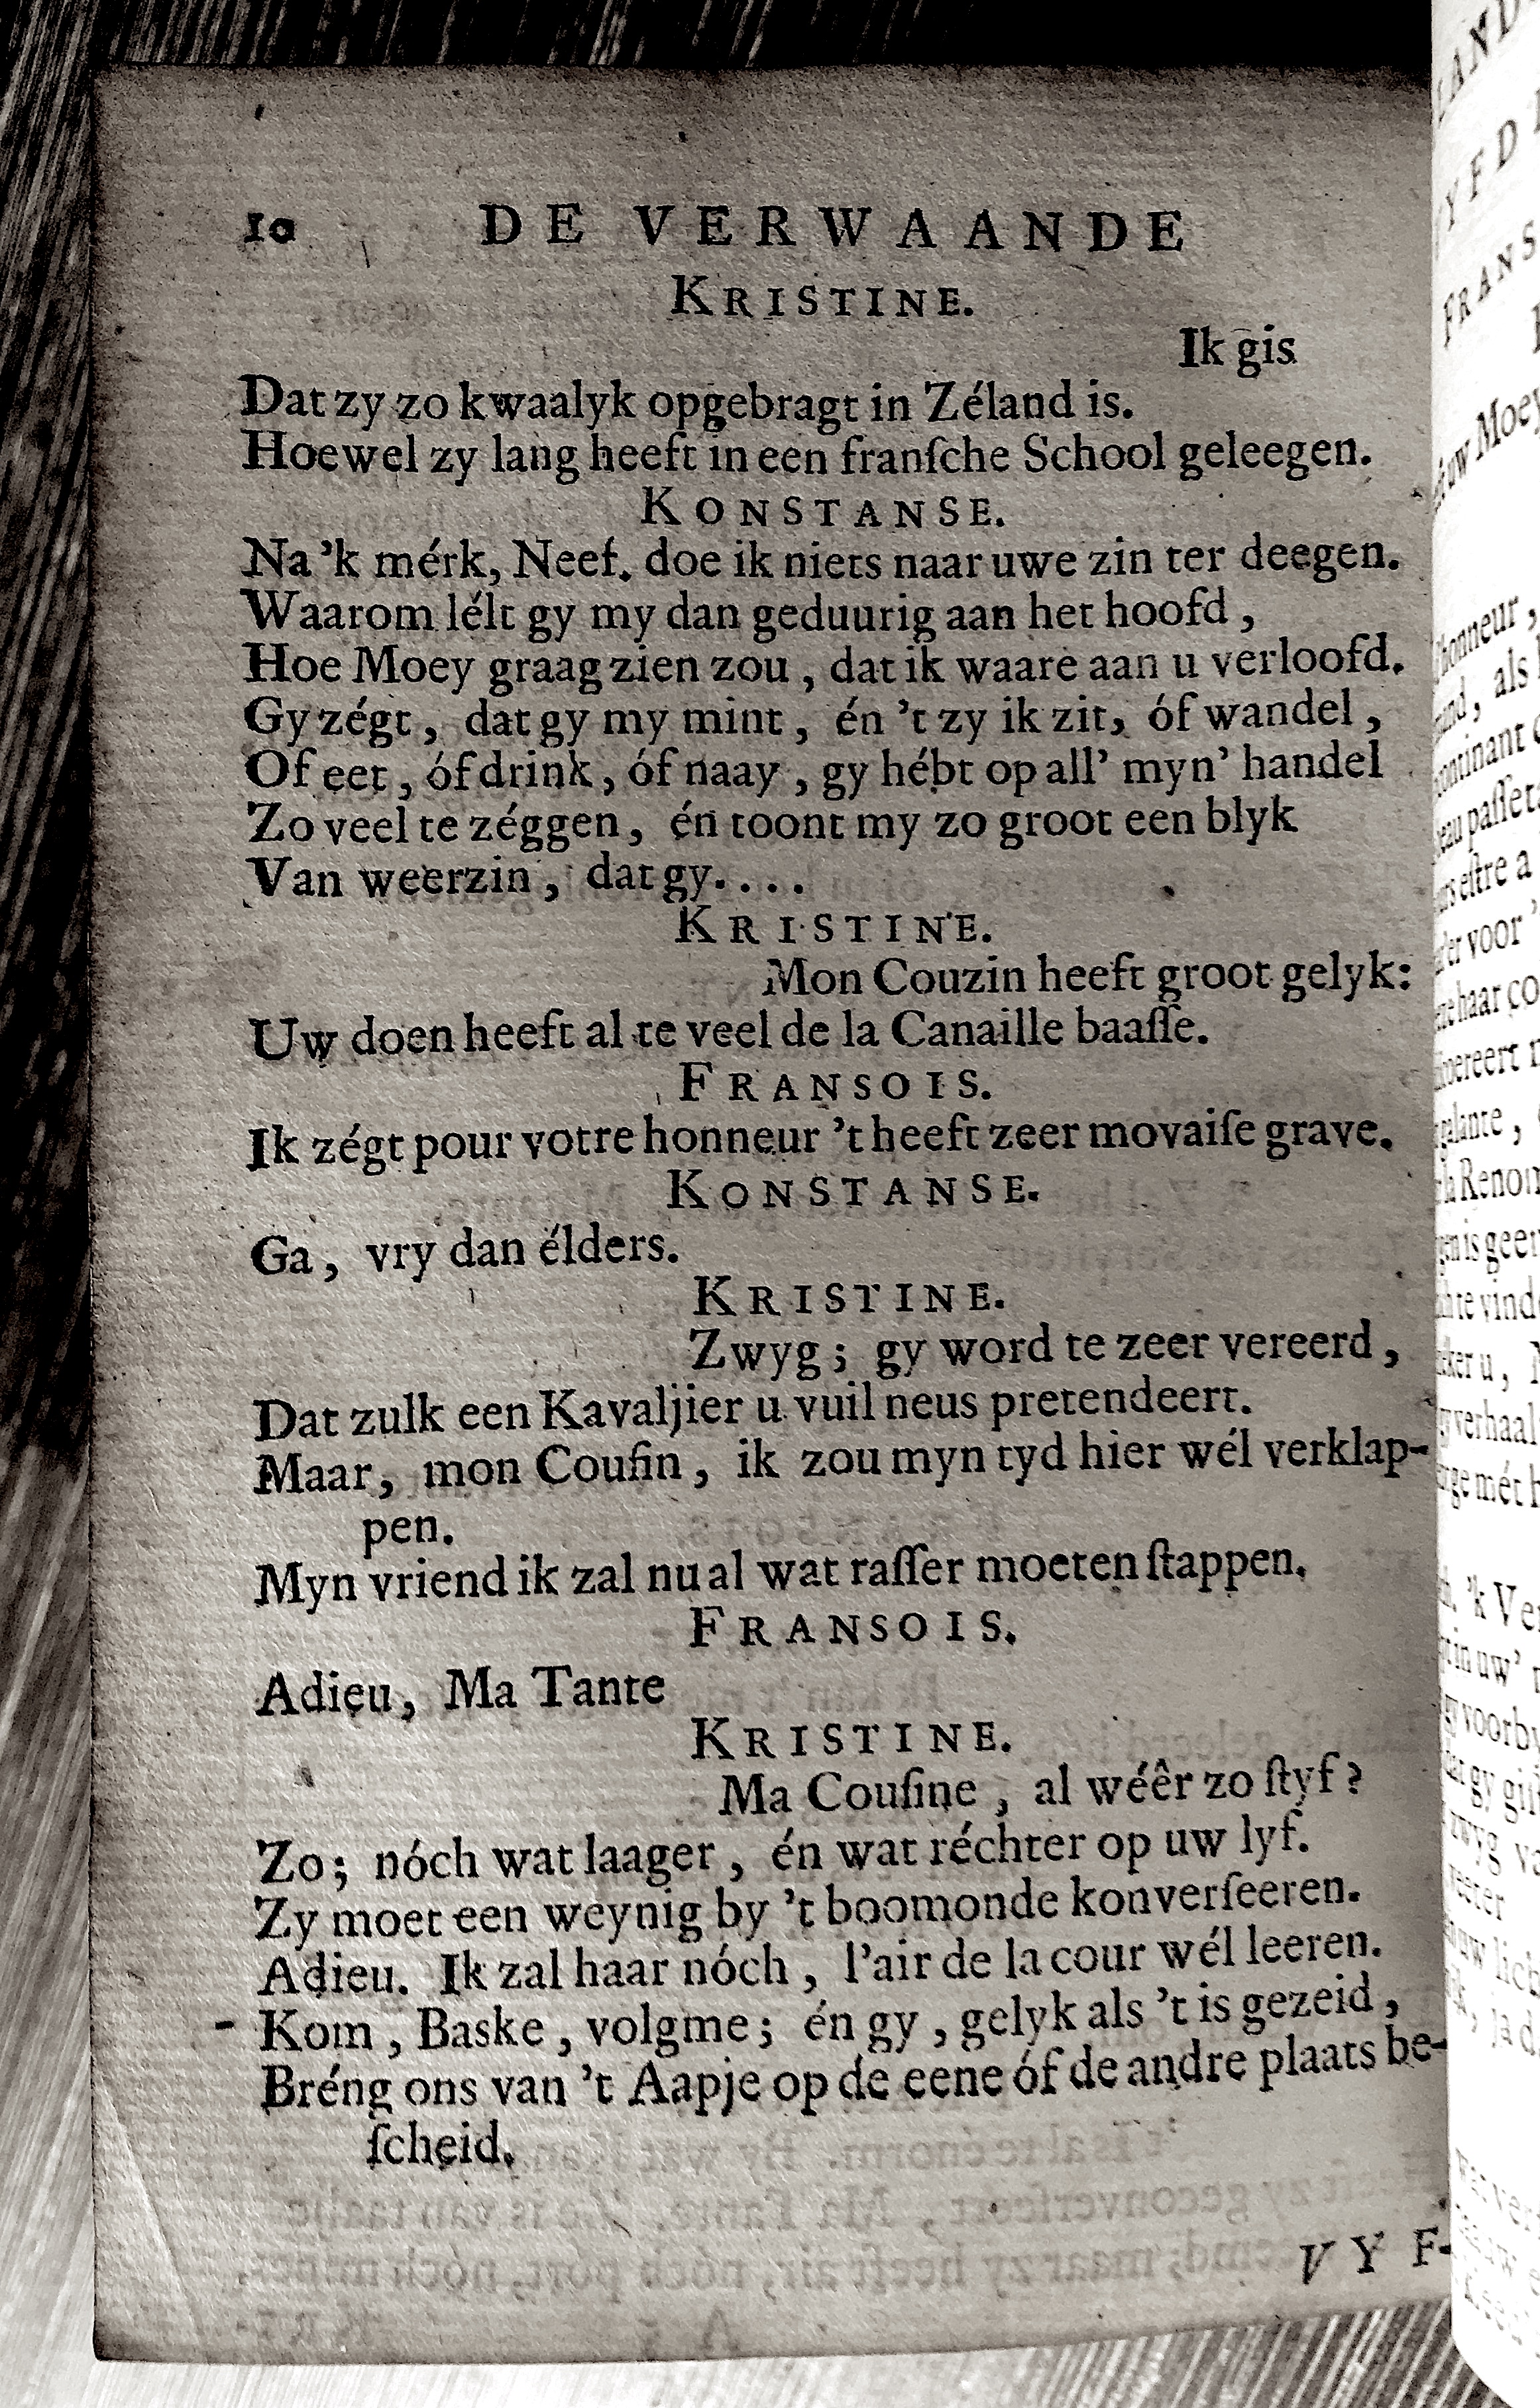 10 DE VERWAANDE
KRISTINE.
Ik gis
Dat zy zo kwaalyk opgebragt in Zéland is.
Hoewel zy lang heeft in een franſche School geleegen.
KONSTANSE.
Na 'k mérk, Neef. doe ik niets naar uwe zin ter deegen.
Waarom lélt gy my dan geduurig aan het hoofd,
Hoe Moey graag zien zou, dat ik waare aan u verloofd.
Gy zégt, dat gy my mint, én 't zy ik zit, óf wandel,
Of eet, óf drink, óf naay, gy hébt op all' myn' handel
Zo veel te zéggen, én toont my zo groot een blyk
Van weerzin, dat gy....
KRISTINE.
Mon Couzin heeft groot gelyk:
Uw doen heeft al te veel de la Canaille baaſſe.
FRANSOIS.
Ik zégt pour votre honneur 't heeft zeer movaiſe grave.
KONSTANSE.
Ga, vry dan élders.
KRISTINE.
Zwyg; gy word te zeer vereerd,
Dat zulk een Kavaljier u vuil neus pretendeert.
Maar, mon Couſin, ik zou myn tyd hier wél verklap-
pen.
Myn vriend ik zal nu al wat raſſer moeten ſtappen.
FRANSOIS.
Adieu, Ma Tante
KRISTINE.
Ma Couſine, al wéêr zo ſtyf?
Zo; nóch wat laager, én wat réchter op uw lyf.
Zy moet een weynig by 't boomonde konverſeeren.
Adieu. Ik zal haar nóch, l'air de la cour wél leeren.
- Kom, Baske, volgme; én gy, gelyk als 't is gezeid,
Bréng ons van 't Aapje op de eene óf de andre plaats be-
ſcheid.
VYF-